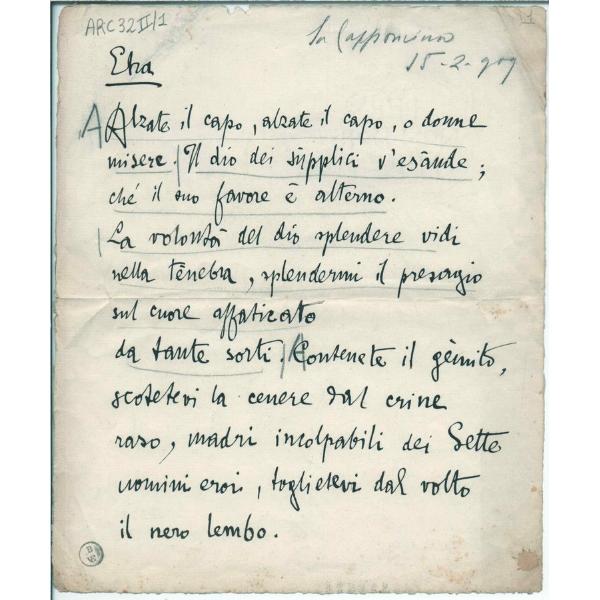 ARC32II/1
1
La Capponcina
15-2-909
Etra
Alzate il capo, alzate il capo, o donne
misere. Il dio dei sùpplici v'esàude;
ché il suo favore è alterno.
La volontà del dio splendere vidi
nella tènebra, splendermi il presagio
sul cuore affaticato
da tante sorti. Contenete il gèmito,
scotetevi la cenere dal crine
raso, madri incolpabili dei Sette
uomini eroi, toglietevi dal volto
il nero lembo.